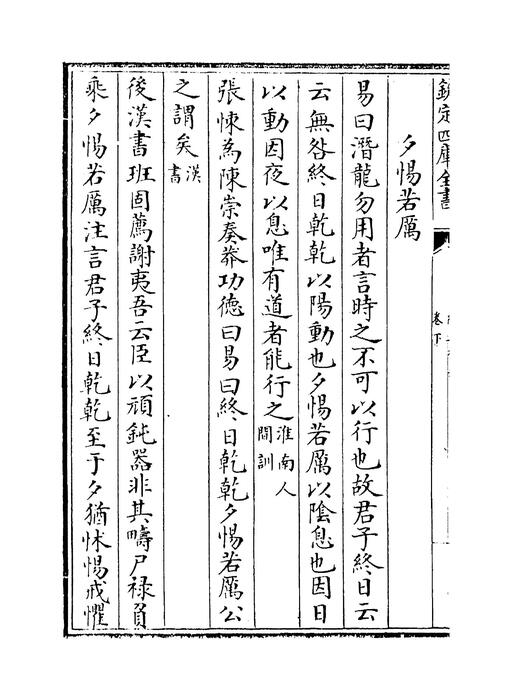 欽定四庫全書
卷下
夕惕若厲
易曰潛龍勿用者言時之不可以行也故君子終日云
云無咎終日乾乾以陽動也夕惕若厲以陰息也因日
以動因夜以息唯有道者能行之淮南人間訓
張悚為陳崇奏莽功德曰易曰終日乾乾夕惕若厲公
之謂矣漢書
後漢書班固薦謝夷吾云臣以頑鈍器非其疇尸祿負
乘夕惕若厲注言君子終日乾乾至于夕猶怵惕戒懼